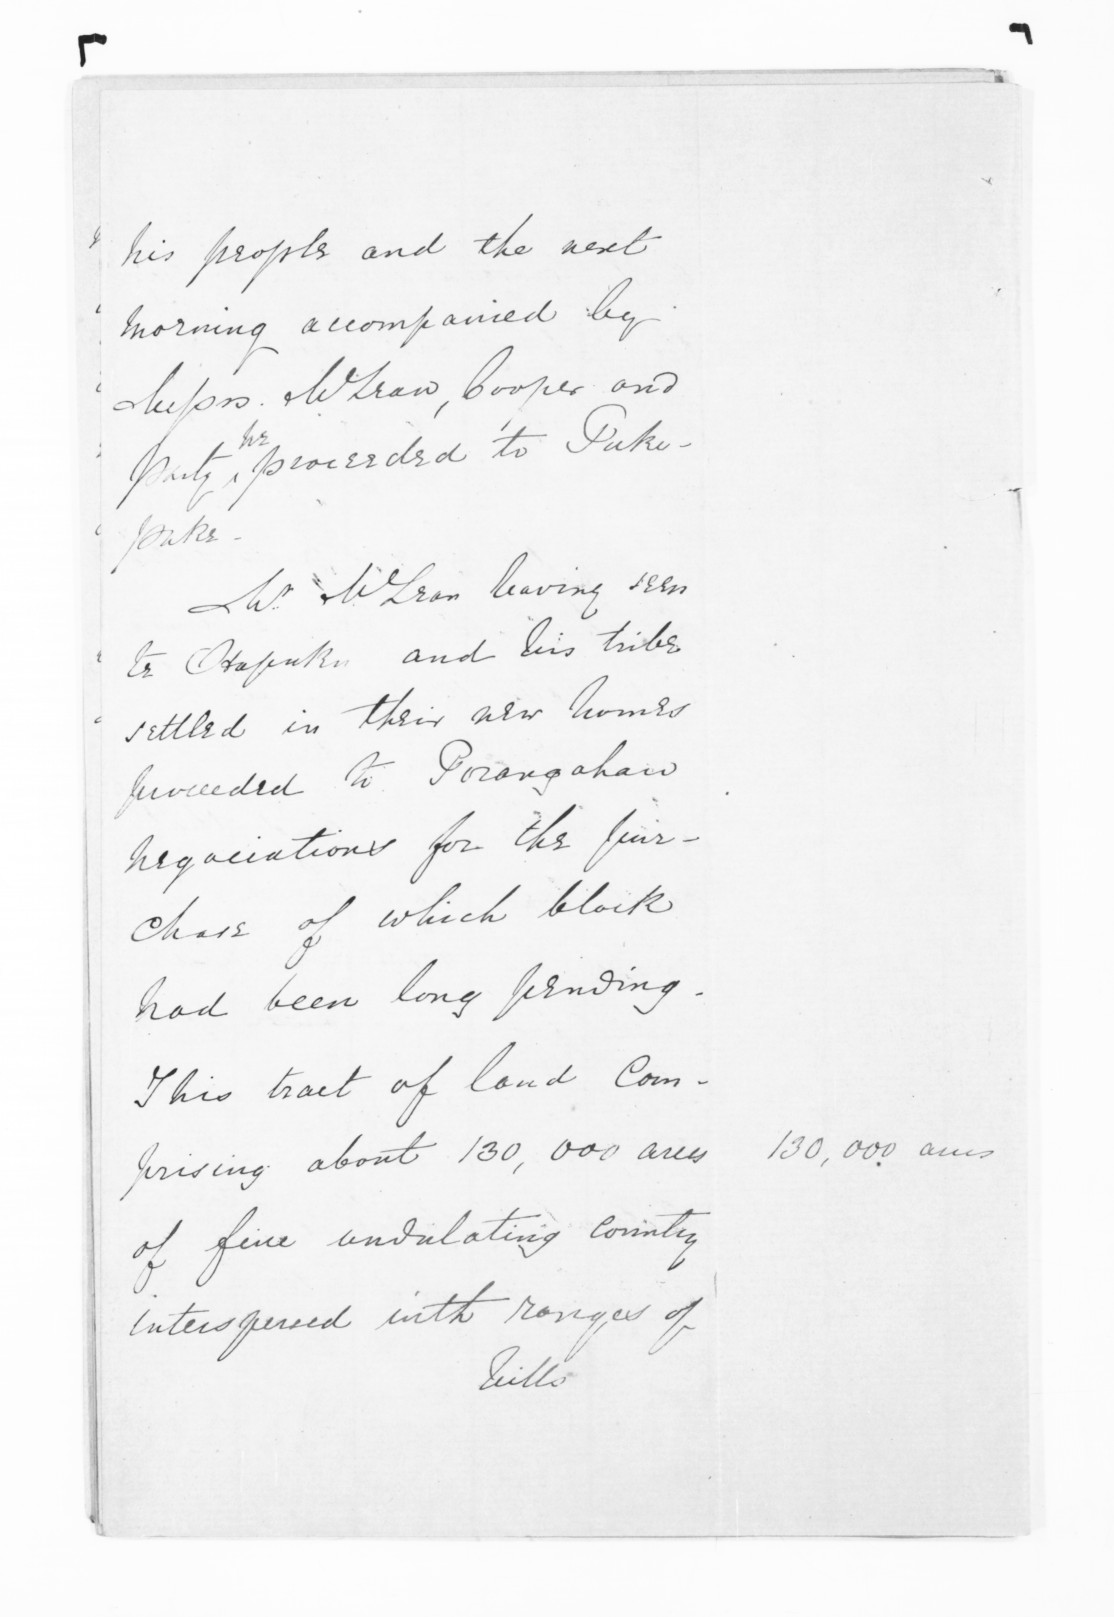 his people and the next
morning accompained by
Messrs. McLean, Cooper and
party, he proceeded to Puke-
puke -
Mr. McLean having seen
te Hapuku and his tribe
settled in their new homes
proceeded to Porangahau
negociations for the pur-
chase of which block
had been long pending.
This tract of land com-
prising about 130,000 acres
130,000 acres
of fine undulating country
interspersed with ranges of
hills